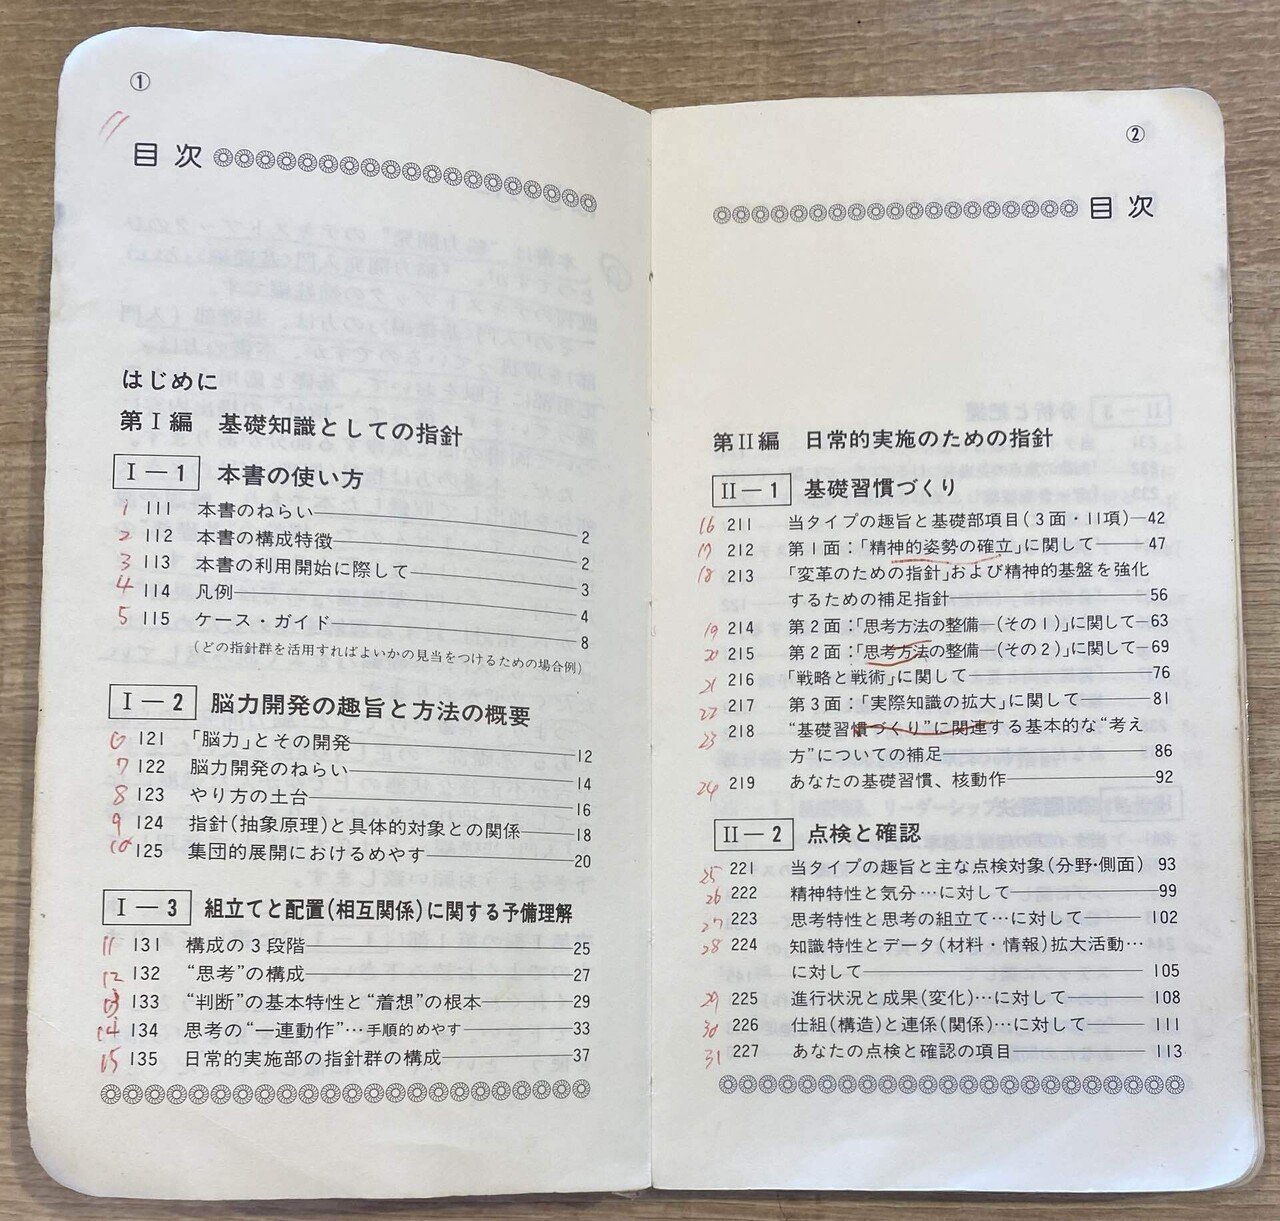 ①
目次
はじめに
第Ⅰ編 基礎知識としての指針
Ⅰ－1 本書の使い方
1 111 本書のねらい 2
2 112 本書の構成特徴 2
3 113 本書の利用開始に際して 3
4 114 凡例 4
5 115 ケース・ガイド 8
(どの指針群を活用すればよいかの見当をつけるための場合例)
Ⅰ－2 脳力開発の趣旨と方法の概要
6 121 「脳力」とその開発 12
7 122 脳力開発のねらい 14
8 123 やり方の土台 16
9 124 指針(抽象原理)と具体的対象との関係 18
10 125 集団的展開におけるめやす 20
Ⅰ－3 組立てと配置(相互関係)に関する予備理解
11 131 構成の3段階 25
12 132 “思考”の構成 27
13 133 “判断”の基本特性と“着想”の根本 29
14 134 思考の“一連動作”…手順的めやす 33
15 135 日常的実施部の指針群の構成 37
②
目次
第Ⅱ編 日常的実施のための指針
Ⅱ－1 基礎習慣づくり
16 211 当タイプの趣旨と基礎部項目(3面・11項) 42
17 212 第1面：「精神的姿勢の確立」に関して 47
18 213 「変革のための指針」および精神的基盤を強化
するための補足指針 56
19 214 第2面：「思考方法の整備―(その1)」に関して 63
20 215 第2面：「思考方法の整備―(その2)」に関して 69
21 216 「戦略と戦術」に関して 76
22 217 第3面：「実際知識の拡大」に関して 81
23 218 “基礎習慣づくり”に関連する基本的な“考え
方”についての補足 86
24 219 あなたの基礎習慣、核動作 92
Ⅱ－2 点検と確認
25 221 当タイプの趣旨と主な点検対象(分野・側面) 93
26 222 精神特性と気分…に対して 99
27 223 思考特性と思考の組立て…に対して 102
28 224 知識特性とデータ(材料・情報)拡大活動…
に対して 105
29 225 進行状況と成果(変化)…に対して 108
30 226 仕組(構造)と連係(関係)…に対して 111
31 227 あなたの点検と確認の項目 113